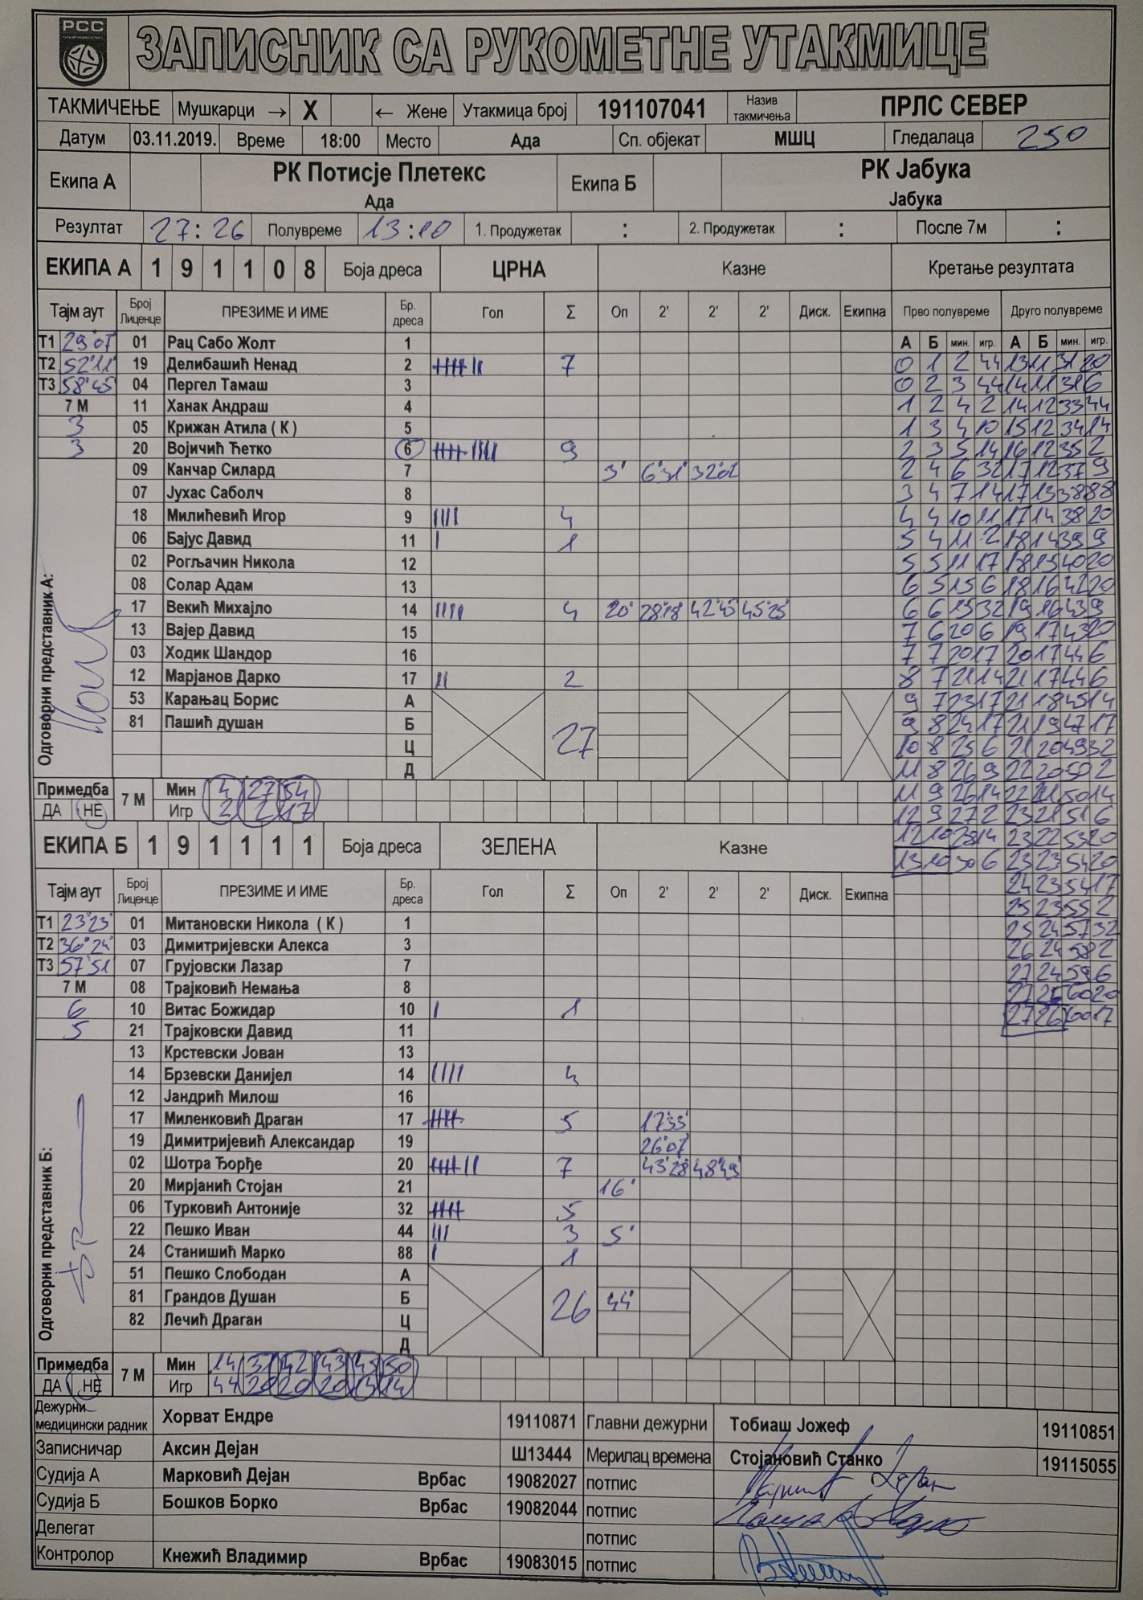 РСС
ЗАПИСНИК СА РУКОМЕТНЕ УТАКМИЦЕ
ТАКМИЧЕЊЕ Мушкарци → X ← Жене Утакмица број 191107041 Назив такмичења ПРЛС СЕВЕР
Датум 03.11.2019. Време 18:00 Место Ада Сп. објекат МШЦ Гледалаца 250
Екипа А РК Потисје Плетекс Екипа Б РК Јабука
Ада Јабука
Резултат 27:26 Полувреме 13:10 1. Продужетак : 2. Продужетак : После 7м :
ЕКИПА А 1 9 1 1 0 8 Боја дреса ЦРНА Казне Кретање резултата
Тајм аут Број Лиценце ПРЕЗИМЕ И ИМЕ Бр. дреса Гол Σ Оп 2' 2' 2' Диск. Екипна Прво полувреме Друго полувреме
А Б мин. игр. А Б мин. игр.
Т1 29'07 01 Рац Сабо Жолт 1
Т2 52'11 19 Делибашић Ненад 2 7
Т3 58'45 04 Пергел Тамаш 3
7 М 11 Ханак Андраш 4
3 05 Крижан Атила ( К ) 5
3 20 Војичић Ћетко 6 9
09 Канчар Силард 7 3' 6'31 32'02
07 Јухас Саболч 8
18 Милићевић Игор 9 4
06 Бајус Давид 11 1
02 Рогљачин Никола 12
08 Солар Адам 13
17 Векић Михајло 14 4 20' 28'18 42'43 45'25
13 Вајер Давид 15
03 Ходик Шандор 16
12 Марјанов Дарко 17 2
53 Карањац Борис А
81 Пашић душан Б 27
Ц
Д
Одговорни представник А:
Примедба ДА НЕ 7 М Мин 4 27 54
Игр 2 2 17
0 1 2 44 13 11 31 20
0 2 3 44 14 11 31 6
1 2 4 2 14 12 33 44
1 3 4 10 15 12 34 14
2 3 5 14 16 12 35 2
2 4 6 32 17 12 37 9
3 4 7 14 17 13 38 88
4 4 10 11 17 14 38 20
5 4 11 2 18 14 39 9
5 5 11 17 18 15 40 20
6 5 15 6 18 16 42 20
6 6 15 32 19 16 43 9
7 6 20 6 19 17 43 20
7 7 20 17 20 17 44 6
8 7 21 14 21 17 44 6
9 7 23 17 21 18 45 14
9 8 24 17 21 19 47 17
10 8 25 6 21 20 49 32
11 8 26 9 22 20 50 2
11 9 26 14 22 21 50 14
12 9 27 2 23 21 51 6
12 10 28 14 23 22 53 20
13 10 30 6 23 23 54 20
24 23 54 17
25 23 55 2
25 24 57 32
26 24 58 2
27 24 59 6
27 25 60 20
27 26 60 17
ЕКИПА Б 1 9 1 1 1 1 Боја дреса ЗЕЛЕНА Казне
Тајм аут Број Лиценце ПРЕЗИМЕ И ИМЕ Бр. дреса Гол Σ Оп 2' 2' 2' Диск. Екипна
Т1 23'23 01 Митановски Никола ( К ) 1
Т2 36'24' 03 Димитријевски Алекса 3
Т3 57'51 07 Грујовски Лазар 7
7 М 08 Трајковић Немања 8
6 10 Витас Божидар 10 1
5 21 Трајковски Давид 11
13 Крстевски Јован 13
14 Брзевски Данијел 14 4
12 Јандрић Милош 16
17 Миленковић Драган 17 5 17'33
19 Димитријевић Александар 19 26'07
02 Шотра Ђорђе 20 7 43'28 48'49
20 Мирјанић Стојан 21 16'
06 Турковић Антоније 32 5
22 Пешко Иван 44 3 5'
24 Станишић Марко 88 1
51 Пешко Слободан А
81 Грандов Душан Б 26 44'
82 Лечић Драган Ц
Д
Одговорни представник Б:
Примедба ДА НЕ 7 М Мин 14 31 42 43 45 50
Игр 44 20 20 20 14
Дежурни медицински радник Хорват Ендре 19110871 Главни дежурни Тобиаш Јожеф 19110851
Записничар Аксин Дејан Ш13444 Мерилац времена Стојановић Станко 19115055
Судија А Марковић Дејан Врбас 19082027 потпис
Судија Б Бошков Борко Врбас 19082044 потпис
Делегат потпис
Контролор Кнежић Владимир Врбас 19083015 потпис